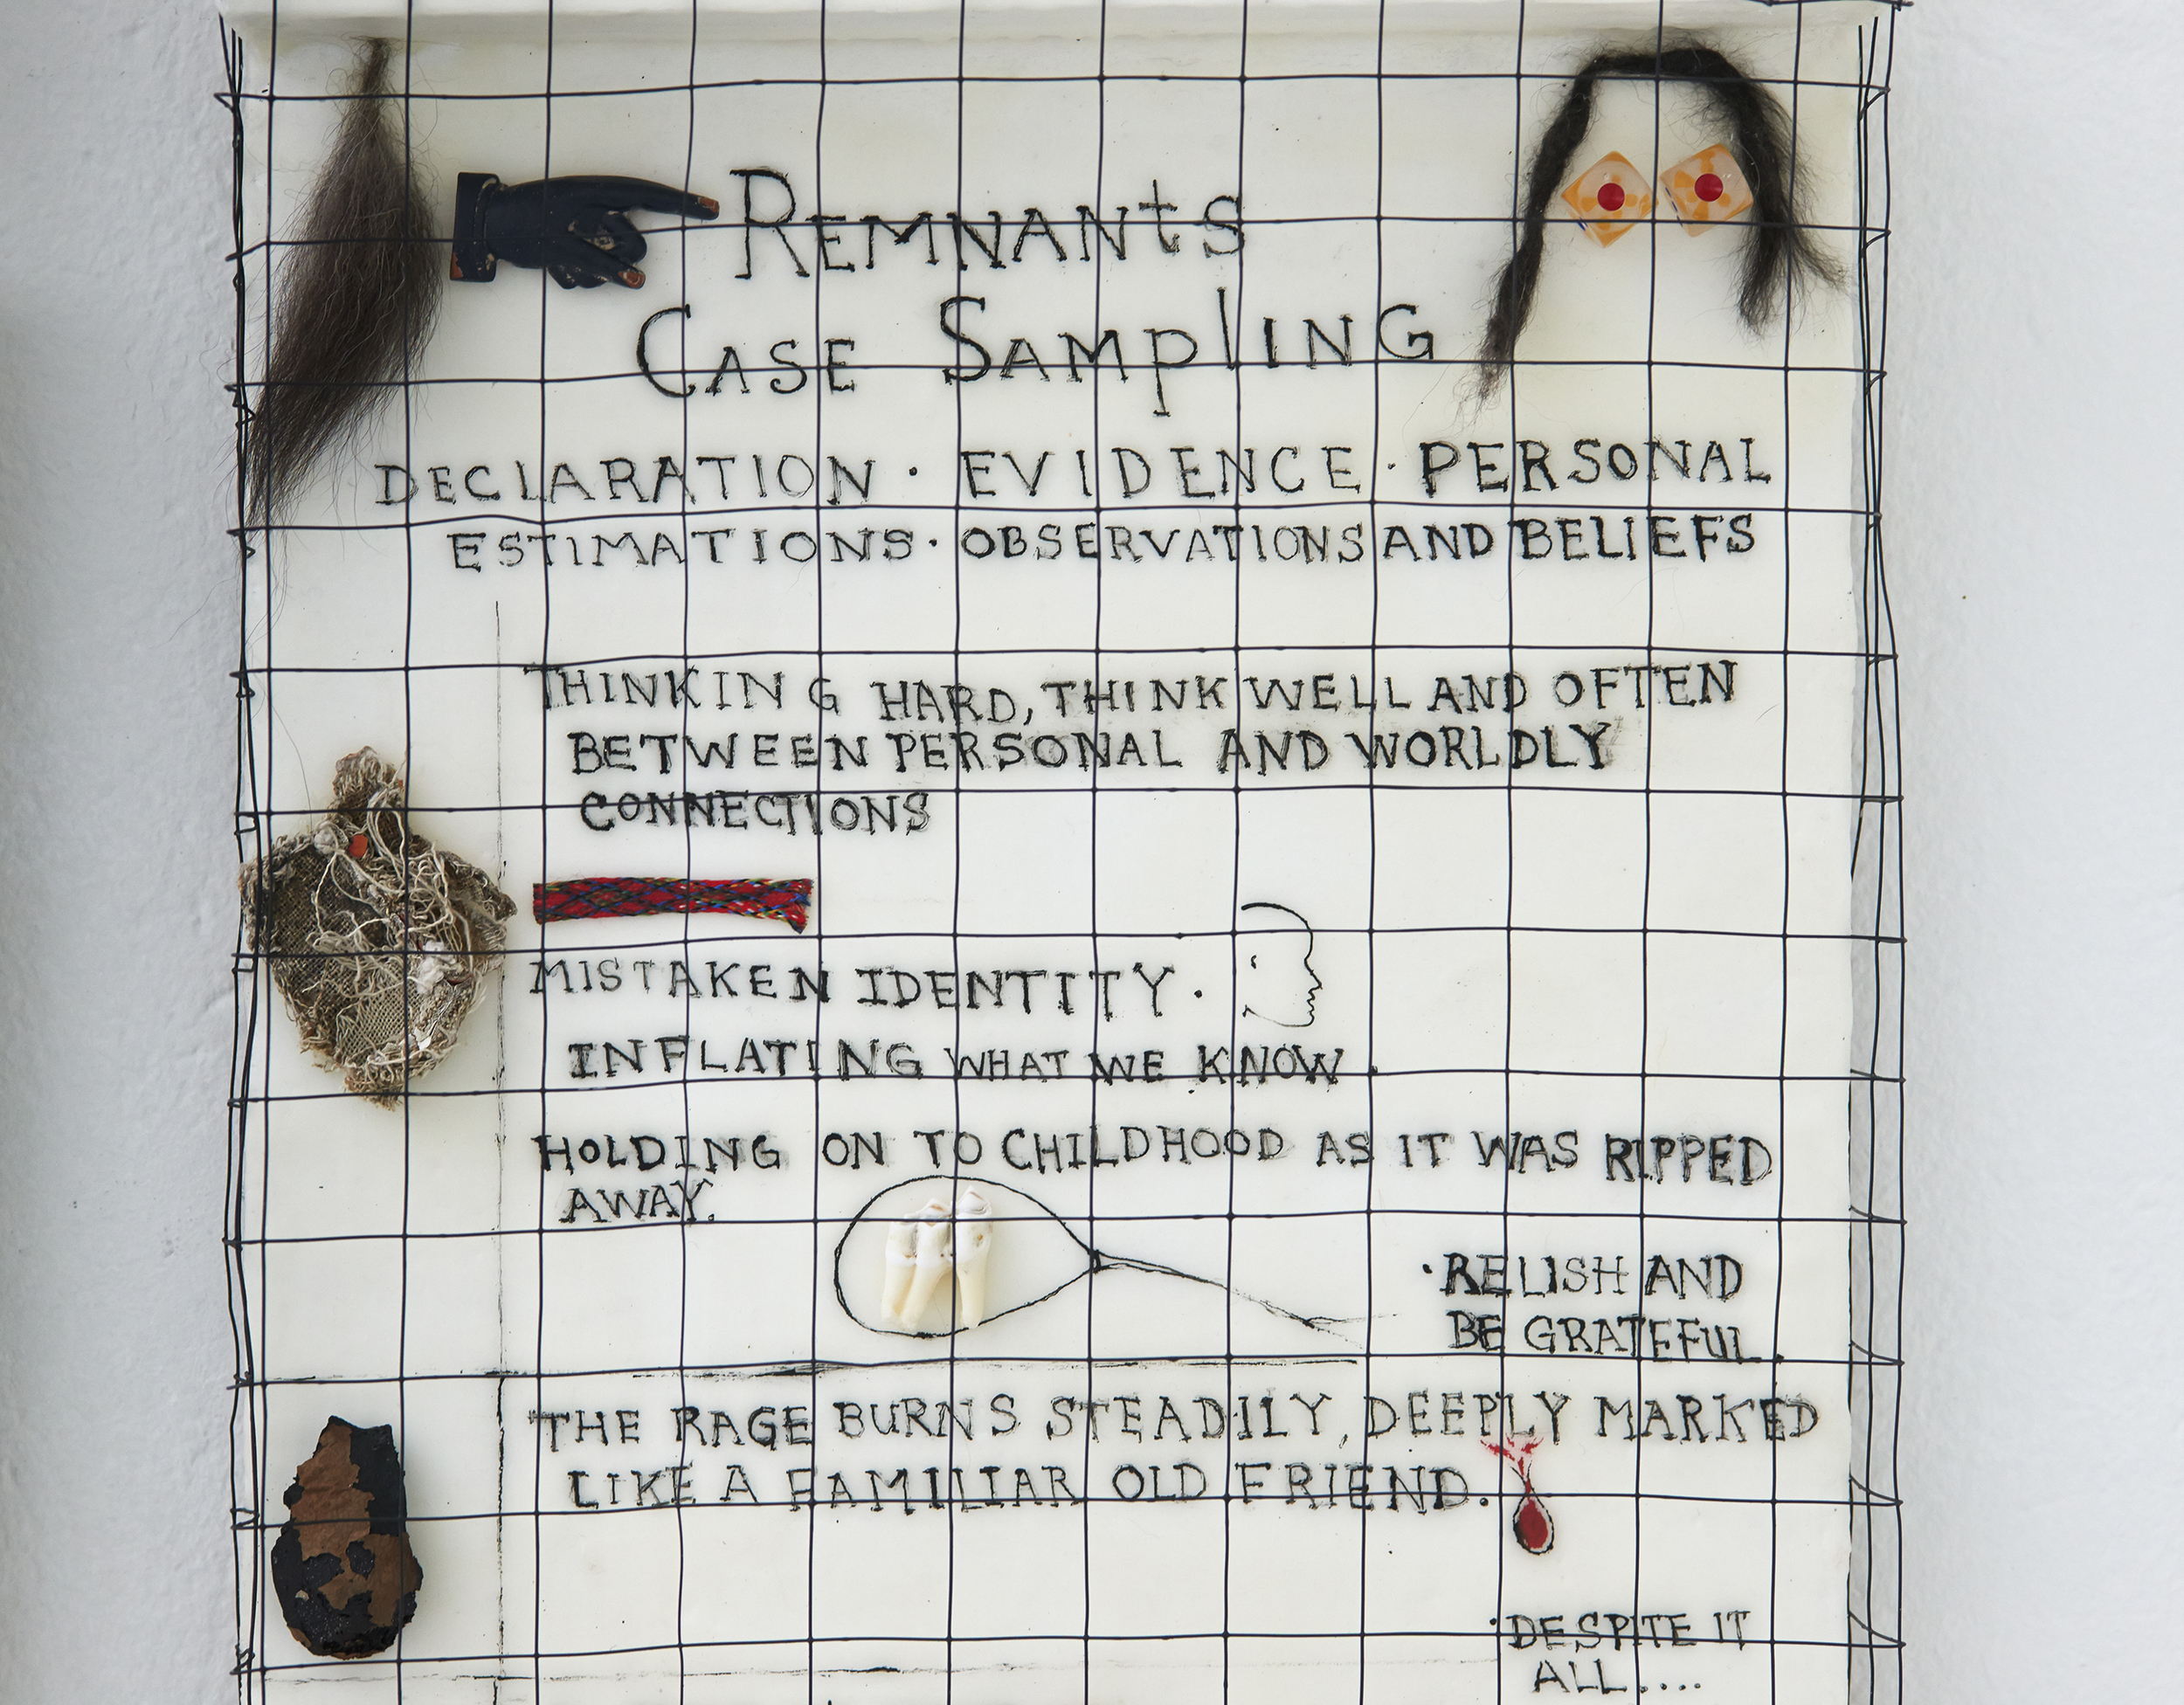 REMNANtS
CASE SAMplING
DECLARATION · EVIDENCE · PERSONAL
ESTIMATIONS · OBSERVATIONS AND BELIEFS
THINKING HARD, THINK WELL AND OFTEN
BETWEEN PERSONAL AND WORLDLY
CONNECTIONS
MISTAKEN IDENTITY.
INFLATING WHAT WE KNOW.
HOLDING ON TO CHILDHOOD AS IT WAS RIPPED
AWAY.
· RELISH AND
BE GRATEFUL.
THE RAGE BURNS STEADILY, DEEPLY MARKED
LIKE A FAMILIAR OLD FRIEND.
· DESPITE IT
ALL....